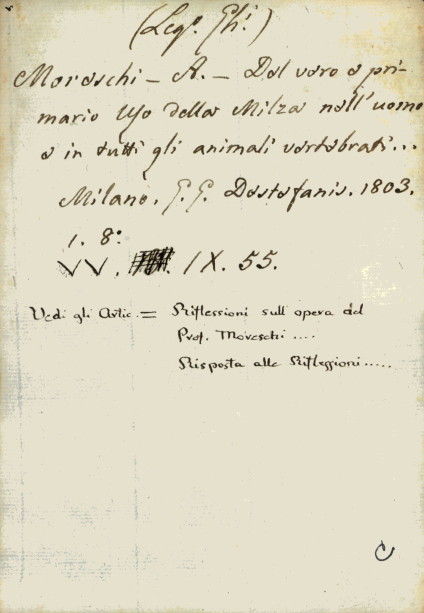 (Legº. Ghi.)
Moreschi - A. - Del vero e pri-
mario Uso della Milza nell'uomo
e in tutti gli animali vertebrati...
Milano. G. G. Destefanis. 1803.
1. 8º.
VV. IX. 55.
Vedi gli Artic. = Riflessioni sull'opera del
Prof. Moreschi ....
Risposta alle Riflessioni.....
C